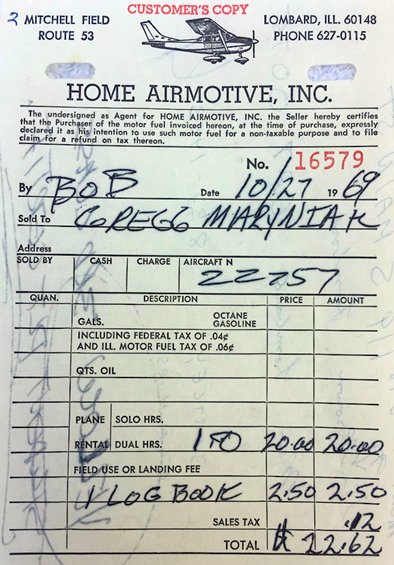 CUSTOMER'S COPY
2 MITCHELL FIELD LOMBARD, ILL. 60148
ROUTE 53 PHONE 627-0115
HOME AIRMOTIVE, INC.
The undersigned as Agent for HOME AIRMOTIVE, INC. the Seller hereby certifies
that the Purchaser of the motor fuel invoiced hereon, at the time of purchase, expressly
declared it as his intention to use such motor fuel for a non-taxable purpose and to file
claim for a refund on tax thereon.
No. 16579
By BOB Date 10/27 1969
Sold To GREGG MARYNIAK
Address
SOLD BY CASH CHARGE AIRCRAFT N
22257
QUAN. DESCRIPTION PRICE AMOUNT
GALS. OCTANE GASOLINE
INCLUDING FEDERAL TAX OF .04¢
AND ILL. MOTOR FUEL TAX OF .06¢
QTS. OIL
PLANE SOLO HRS.
RENTAL DUAL HRS. 1 20.00 20.00
FIELD USE OR LANDING FEE
1 LOG BOOK 2.50 2.50
SALES TAX .12
TOTAL 22.62